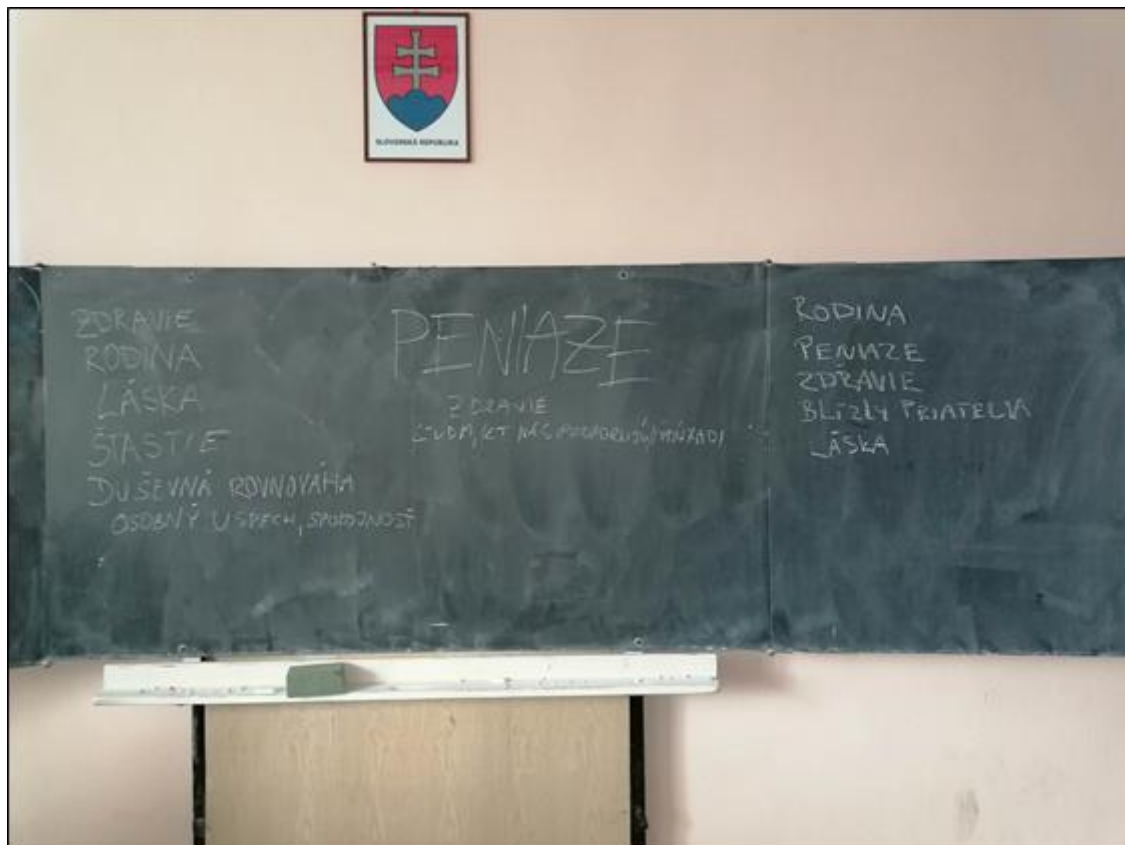 SLOVENSKÁ REPUBLIKA
ZDRAVIE
RODINA
LÁSKA
ŠTASTIE
DUŠEVNÁ ROVNOVÁHA
OSOBNÝ USPECH, SPOKOJNOSŤ
PENIAZE
ZDRAVIE
RODINA
PENIAZE
ZDRAVIE
BLÍZKY PRIATELIA
LÁSKA